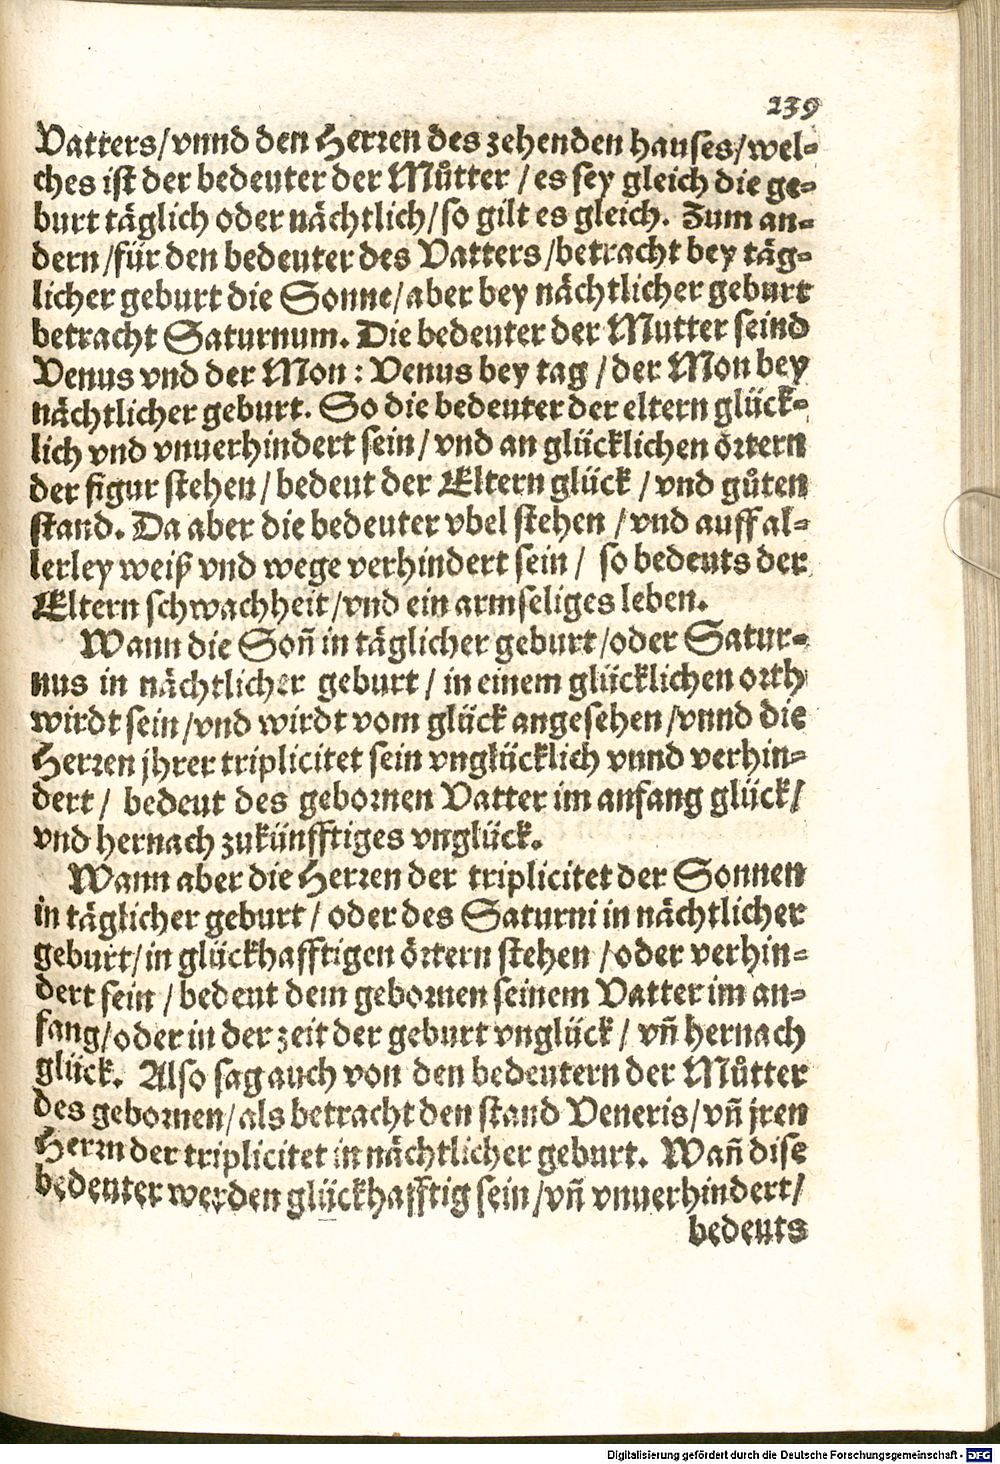 239
Vatters/vnnd den Herren des zehenden hauses/wel-
ches ist der bedeuter der Můtter/es sey gleich die ge-
burt täglich oder nächtlich/so gilt es gleich. Zum an-
dern/für den bedeuter des Vatters/betracht bey täg-
licher geburt die Sonne/aber bey nächtlicher geburt
betracht Saturnum. Die bedeuter der Mutter seind
Venus vnd der Mon: Venus bey tag/der Mon bey
nächtlicher geburt. So die bedeuter der eltern glück-
lich vnd vnuerhindert sein/vnd an glücklichen örtern
der figur stehen/bedeut der Eltern glück/vnd gůten
stand. Da aber die bedeuter vbel stehen/vnd auff al-
lerley weiß vnd wege verhindert sein/ so bedeuts der
Eltern schwachheit/vnd ein armseliges leben.
Wann die Soñ in täglicher geburt/oder Satur-
nus in nächtlicher geburt/in einem glücklichen orth
wirdt sein/vnd wirdt vom glück angesehen/vnnd die
Herren jhrer triplicitet sein vnglücklich vnnd verhin-
dert/ bedeut des gebornen Vatter im anfang glück/
vnd hernach zukünfftiges vnglück.
Wann aber die Herren der triplicitet der Sonnen
in täglicher geburt/oder des Saturni in nächtlicher
geburt/in glückhafftigen örtern stehen/oder verhin-
dert sein/bedeut dem gebornen seinem Vatter im an-
fang/oder in der zeit der geburt vnglück/ vñ hernach
glück. Also sag auch von den bedeutern der Můtter
des gebornen/als betracht den stand Veneris/vñ jren
Herrn der triplicitet in nächtlicher geburt. Wañ dise
bedeuter werden glückhafftig sein/vñ vnuerhindert/
bedeuts
Digitalisierung gefördert durch die Deutsche Forschungsgemeinschaft - DFG